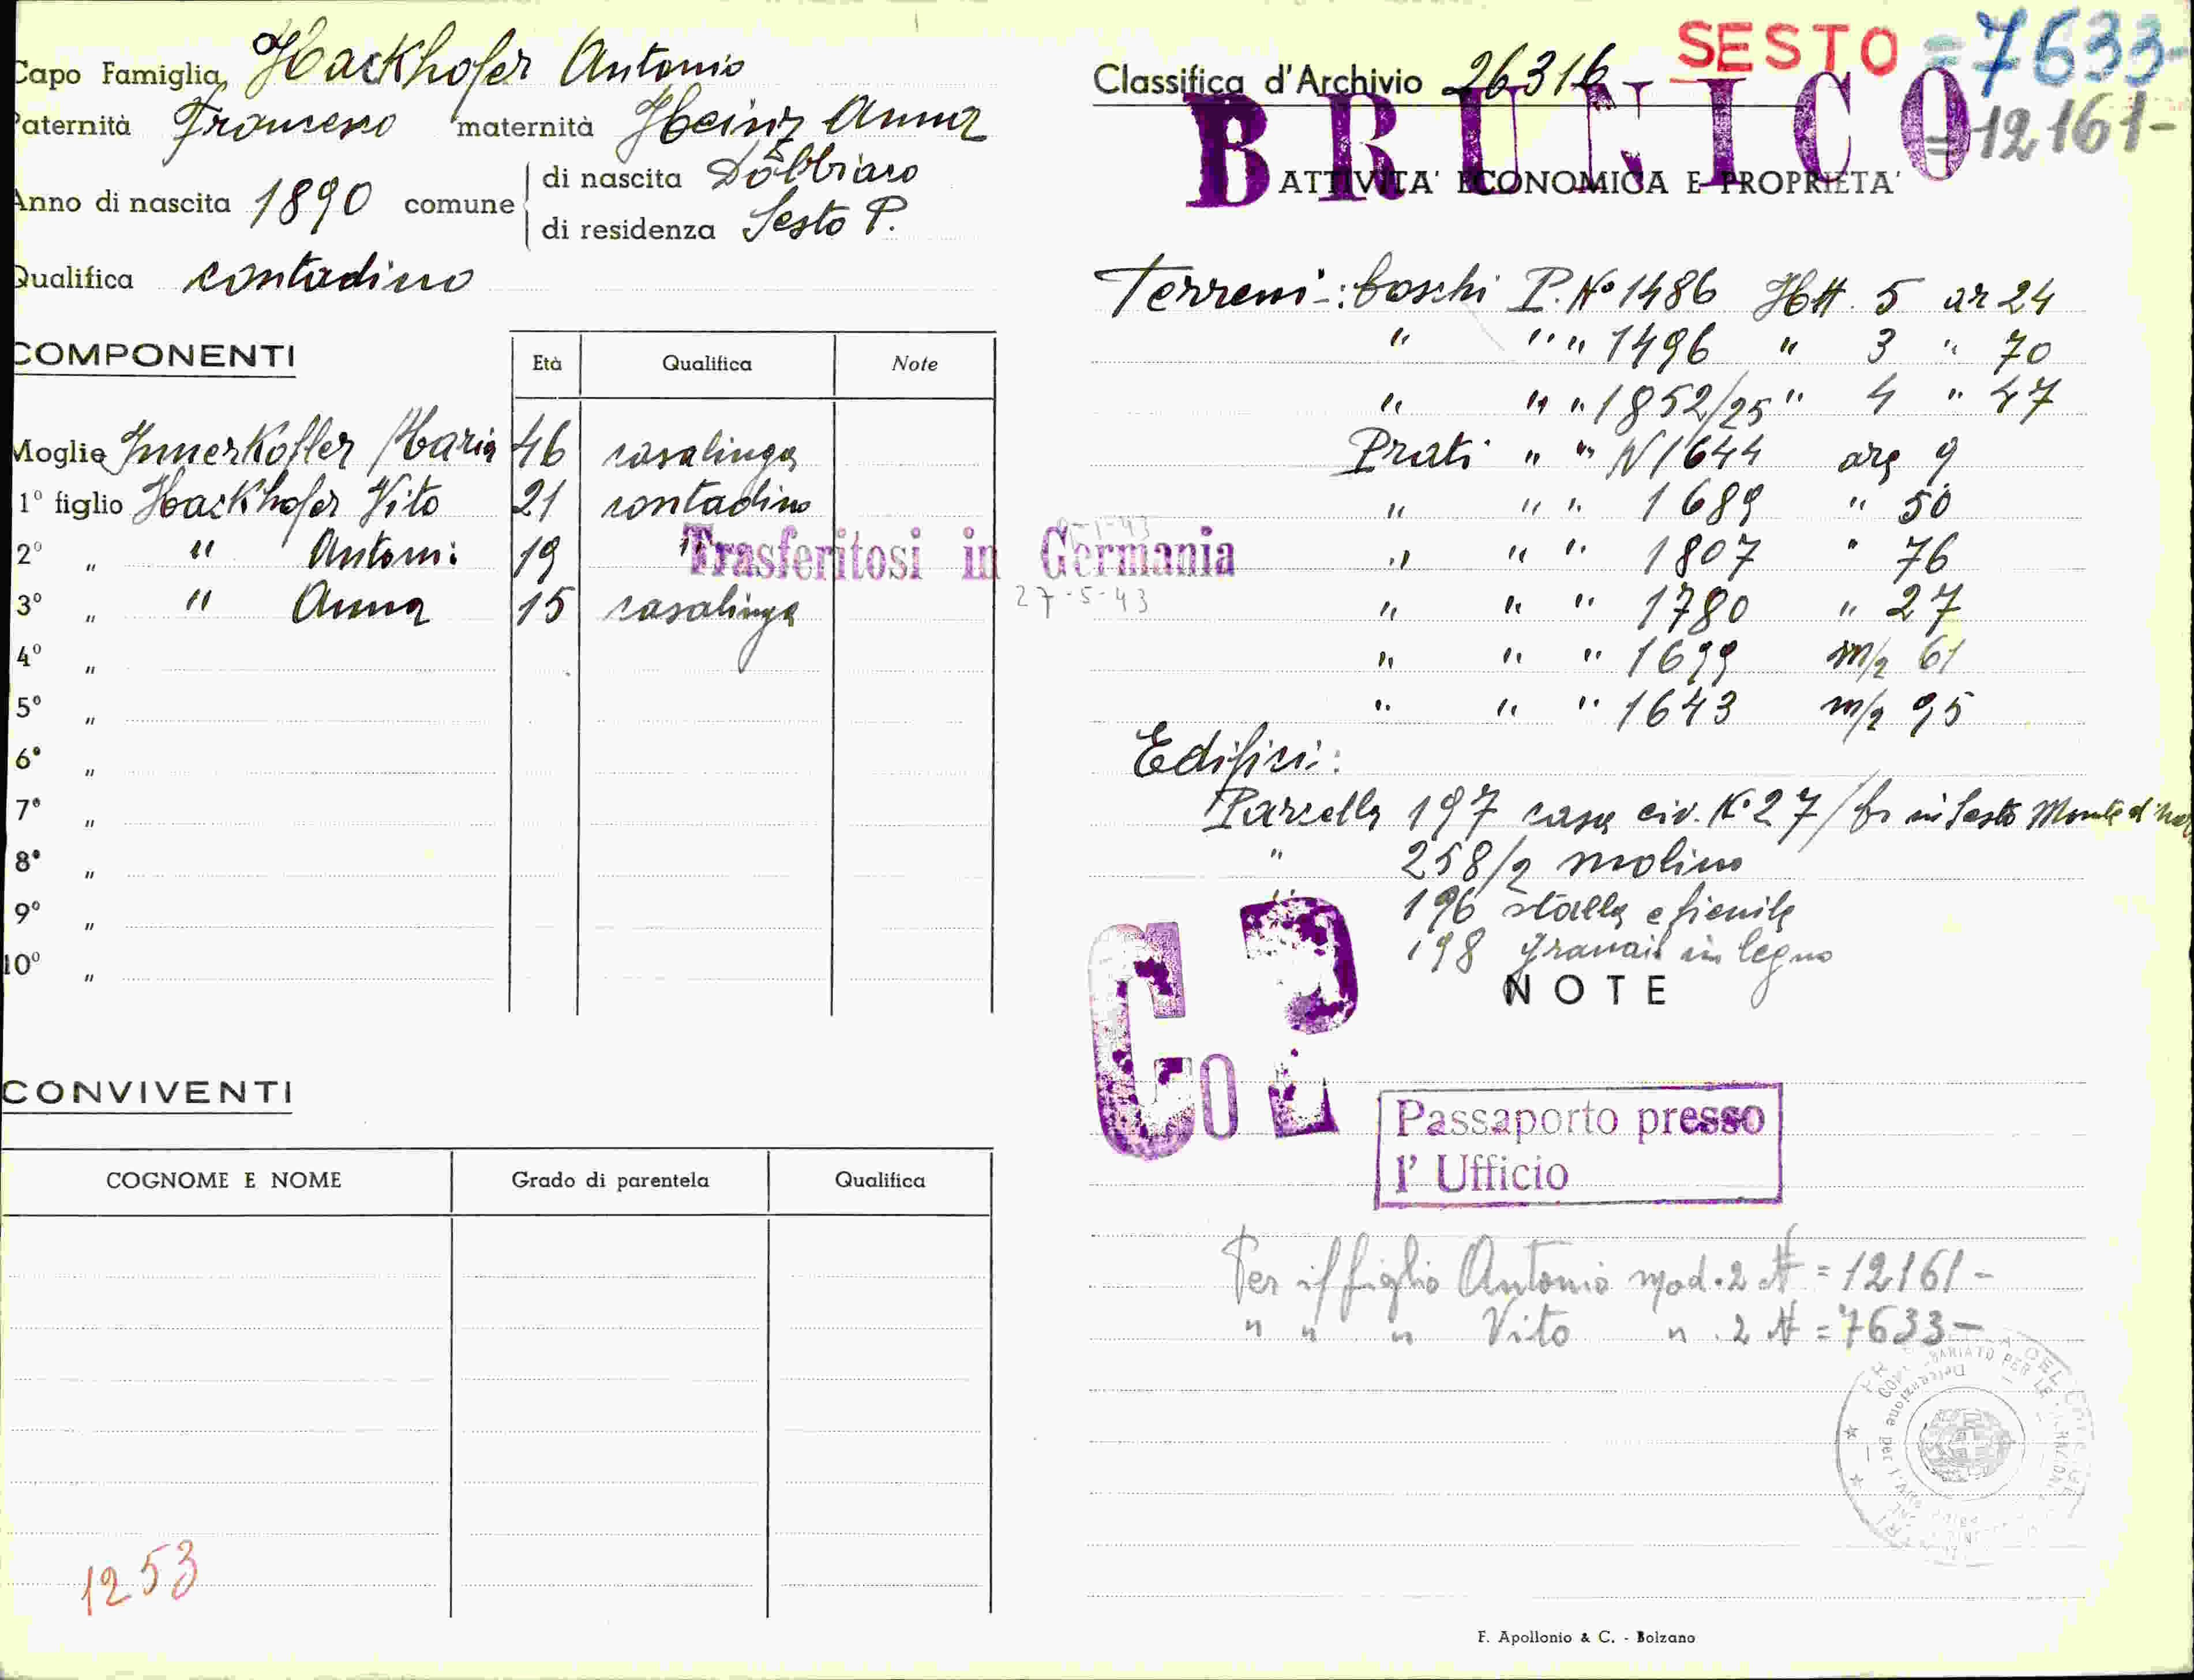 Capo Famiglia Hackhofer Antonio
Paternità Francesco maternità Heinz Anna
Anno di nascita 1890 comune di nascita Dobbiaco
di residenza Sesto P.
Qualifica contadino
COMPONENTI Età Qualifica Note
Moglie Innerkofler Maria 46 casalinga
1º figlio Hackhofer Vito 21 contadino
2º " " Antoni: 19 "
Trasferitosi in Germania
27-5-43
3º " " Anna 15 casalinga
4º "
5º "
6º "
7º "
8º "
9º "
10º "
CONVIVENTI
COGNOME E NOME Grado di parentela Qualifica
1253
SESTO = 7633-
Classifica d'Archivio 26316
BRUNICO = 12161-
ATTIVITA' ECONOMICA E PROPRIETA'
Terreni: boschi P. Nº 1486 Htt. 5 ar 24
" " " 1496 " 3 " 70
" " " 1852/25 " 4 " 47
Prati " " N 1644 are 9
" " " 1689 " 50
" " " 1807 " 76
" " " 1780 " 27
" " " 1699 m/2 61
" " " 1643 m/2 95
Edifici:
Parcella 197 casa civ. Nº 27/b in Sesto Monte di
" 258/2 molino
" 196 stalla e fienile
198 granaio in legno
NOTE
Co 2
Passaporto presso
l' Ufficio
Per il figlio Antonio mod. 2 N = 12161-
" " " Vito " . 2 N = 7633-
F. Apollonio & C. - Bolzano